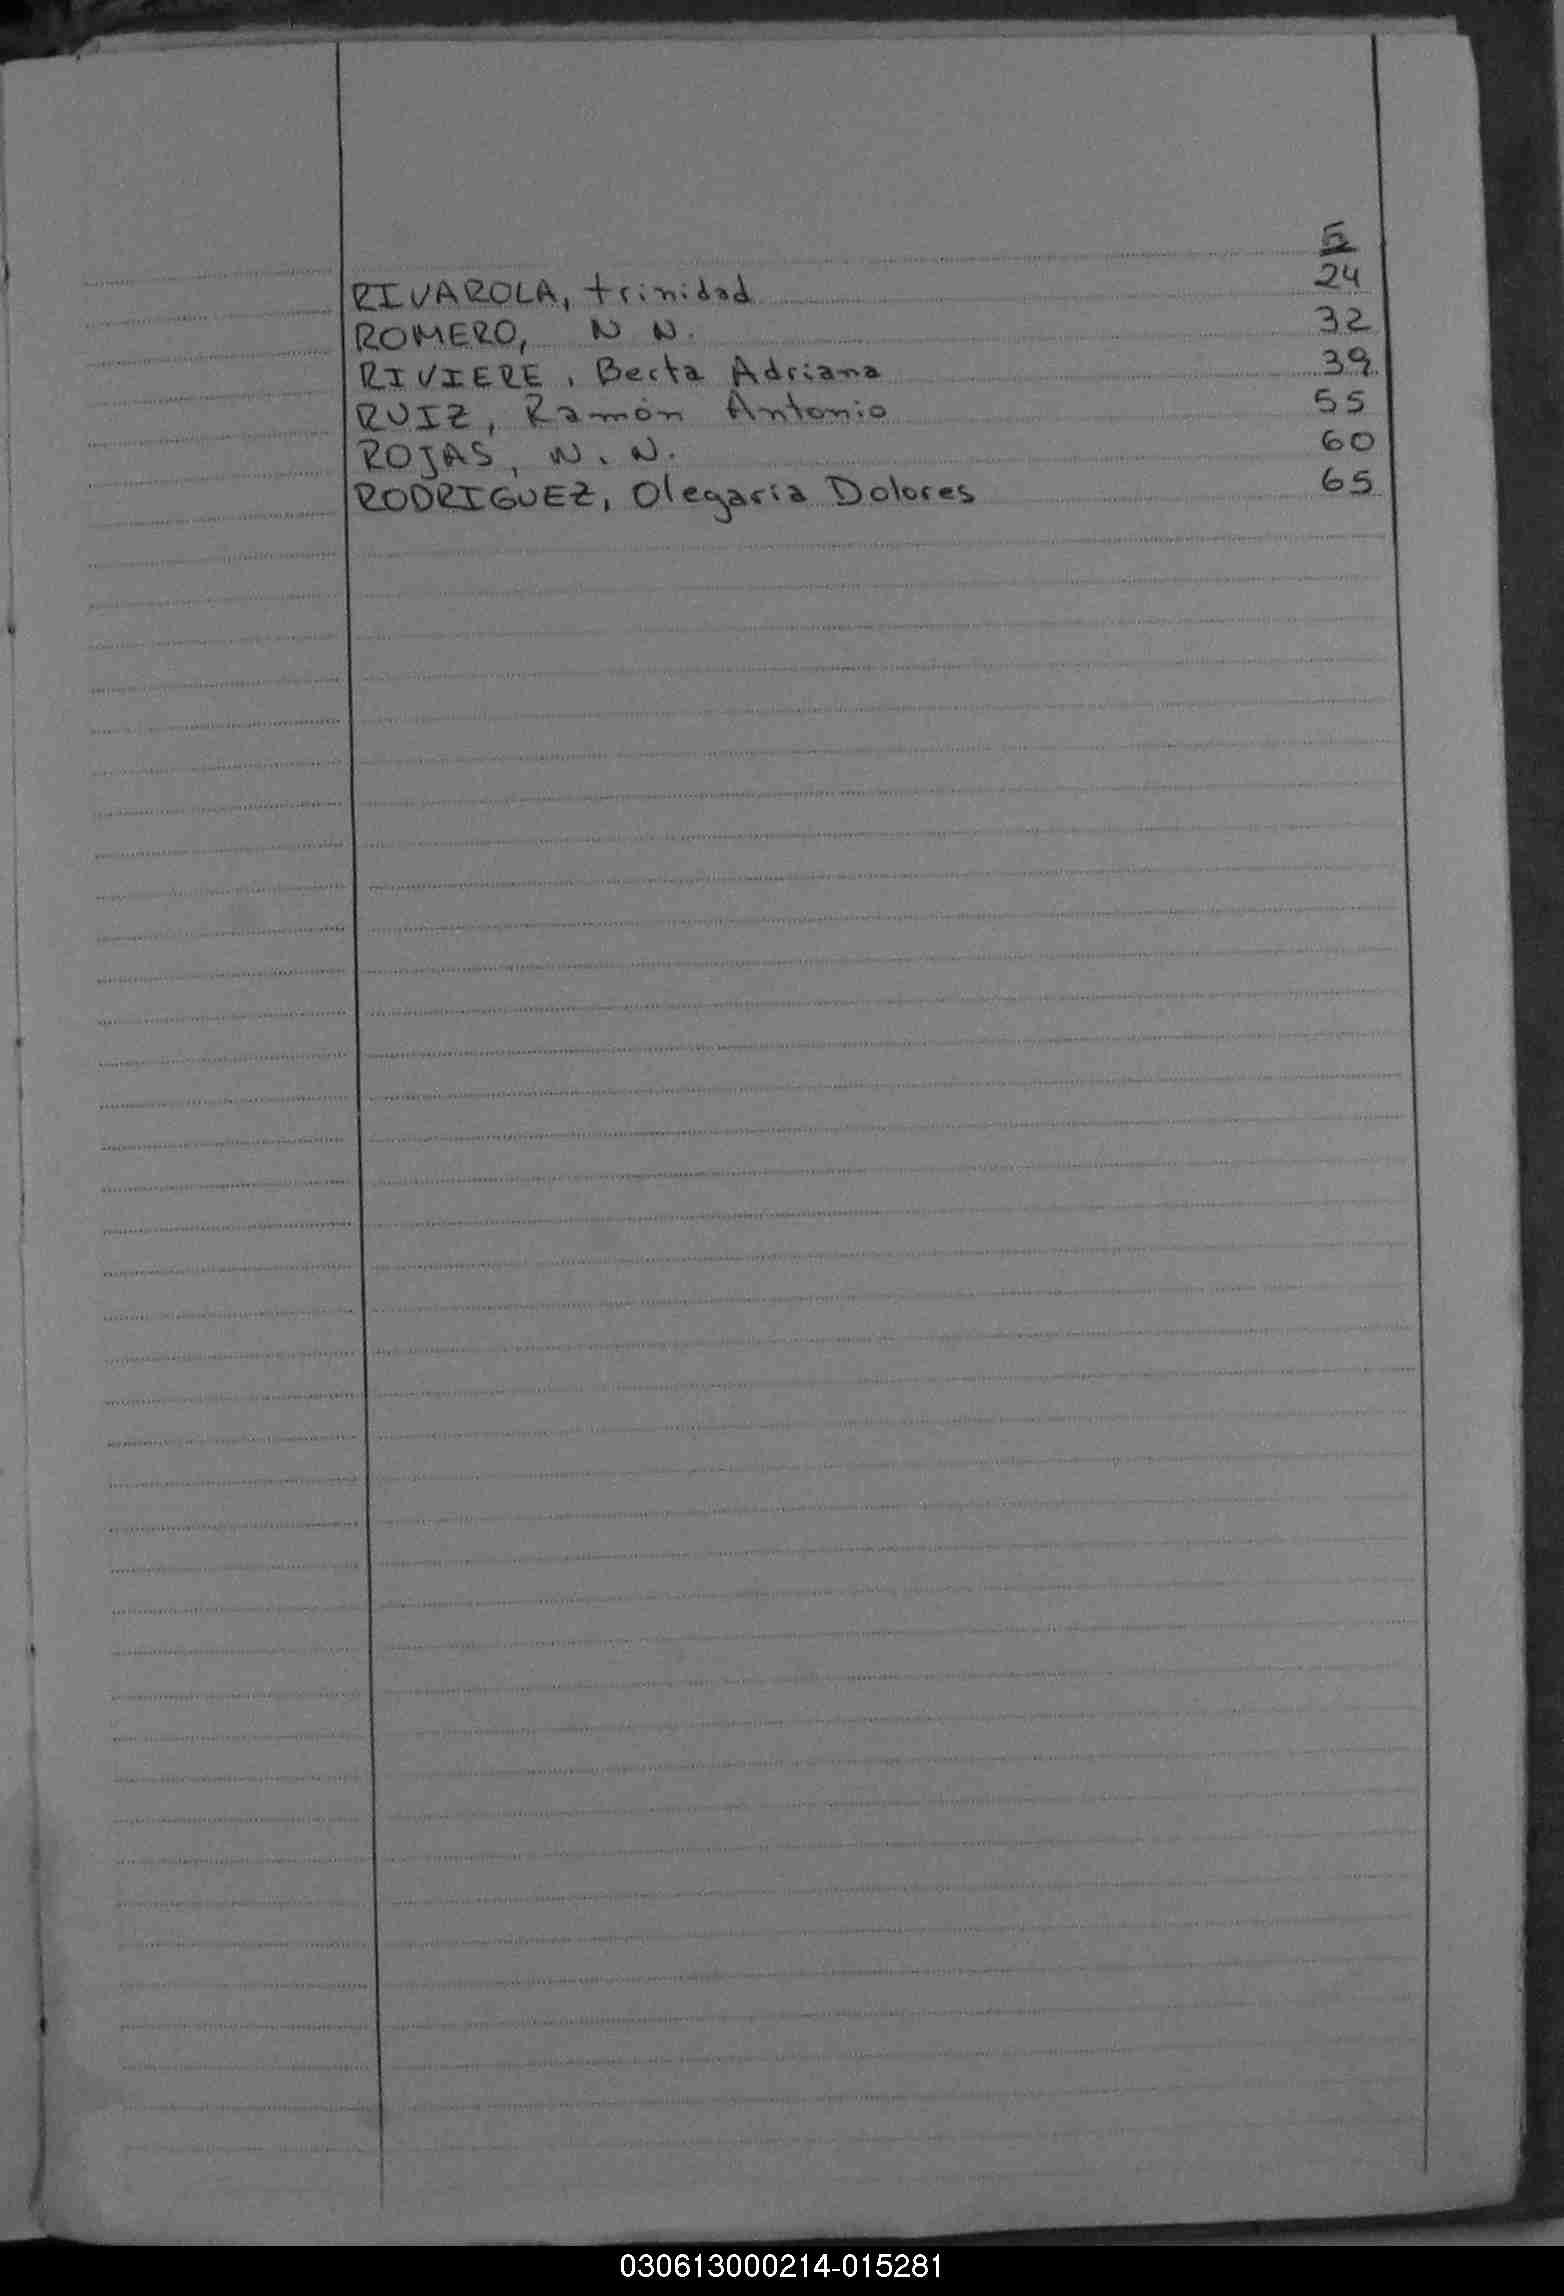 RIVAROLA, trinidad 24
ROMERO, N N. 32
RIVIERE, Berta Adriana 39
RUIZ, Ramón Antonio 55
ROJAS, N. N. 60
RODRIGUEZ, Olegaria Dolores 65
030613000214-015281